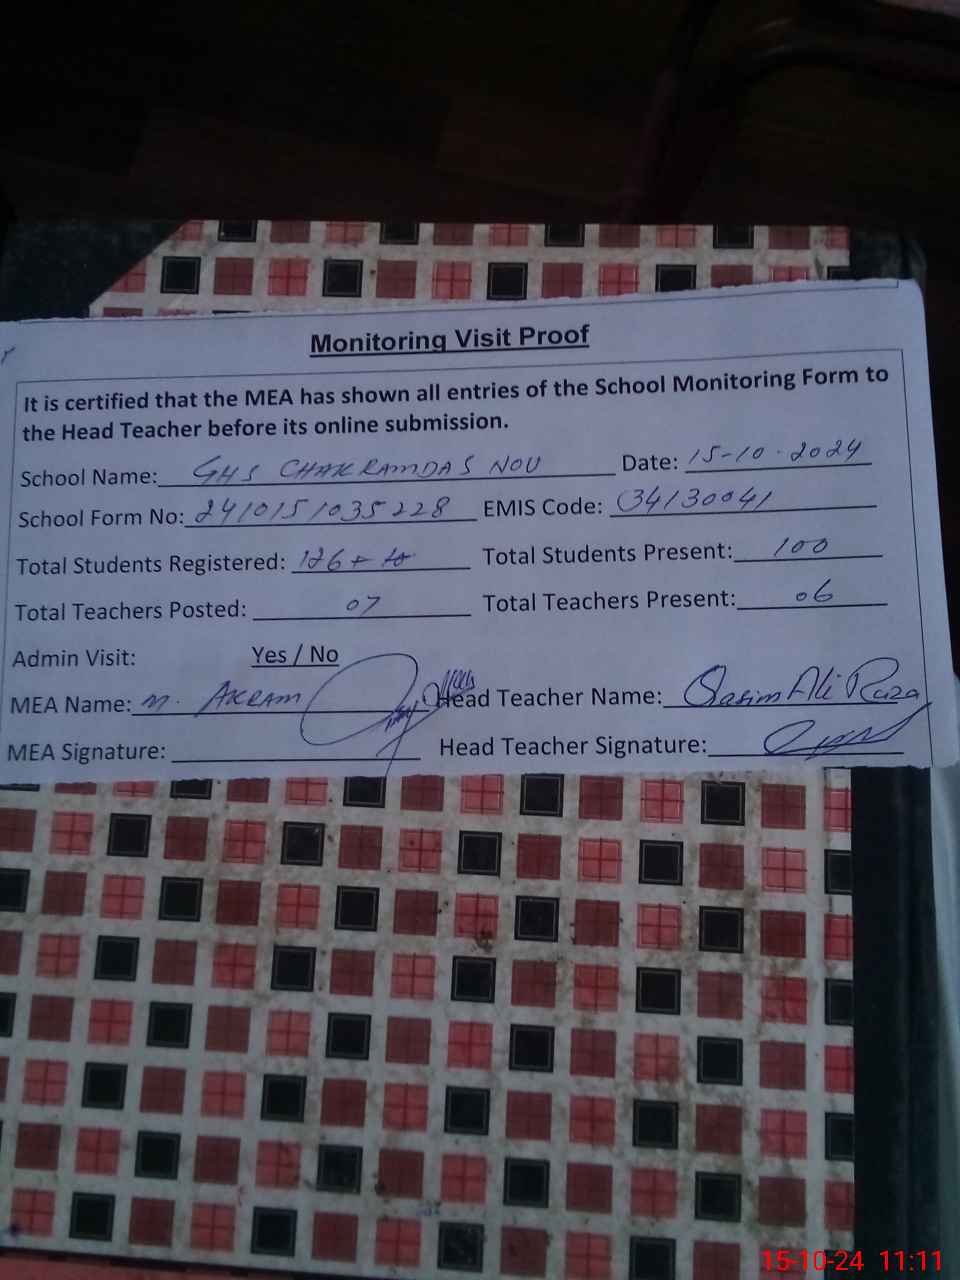 Monitoring Visit Proof
It is certified that the MEA has shown all entries of the School Monitoring Form to
the Head Teacher before its online submission.
School Name: GHS CHAKRAMDAS NOU Date: 15-10-2024
School Form No: 2410151035228 EMIS Code: 34130041
Total Students Registered: 126 Total Students Present: 100
Total Teachers Posted: 07 Total Teachers Present: 06
Admin Visit: Yes / No
MEA Name: M. AKRAM Head Teacher Name: Qasim Ali Raza
MEA Signature: Head Teacher Signature:
15-10-24 11:11